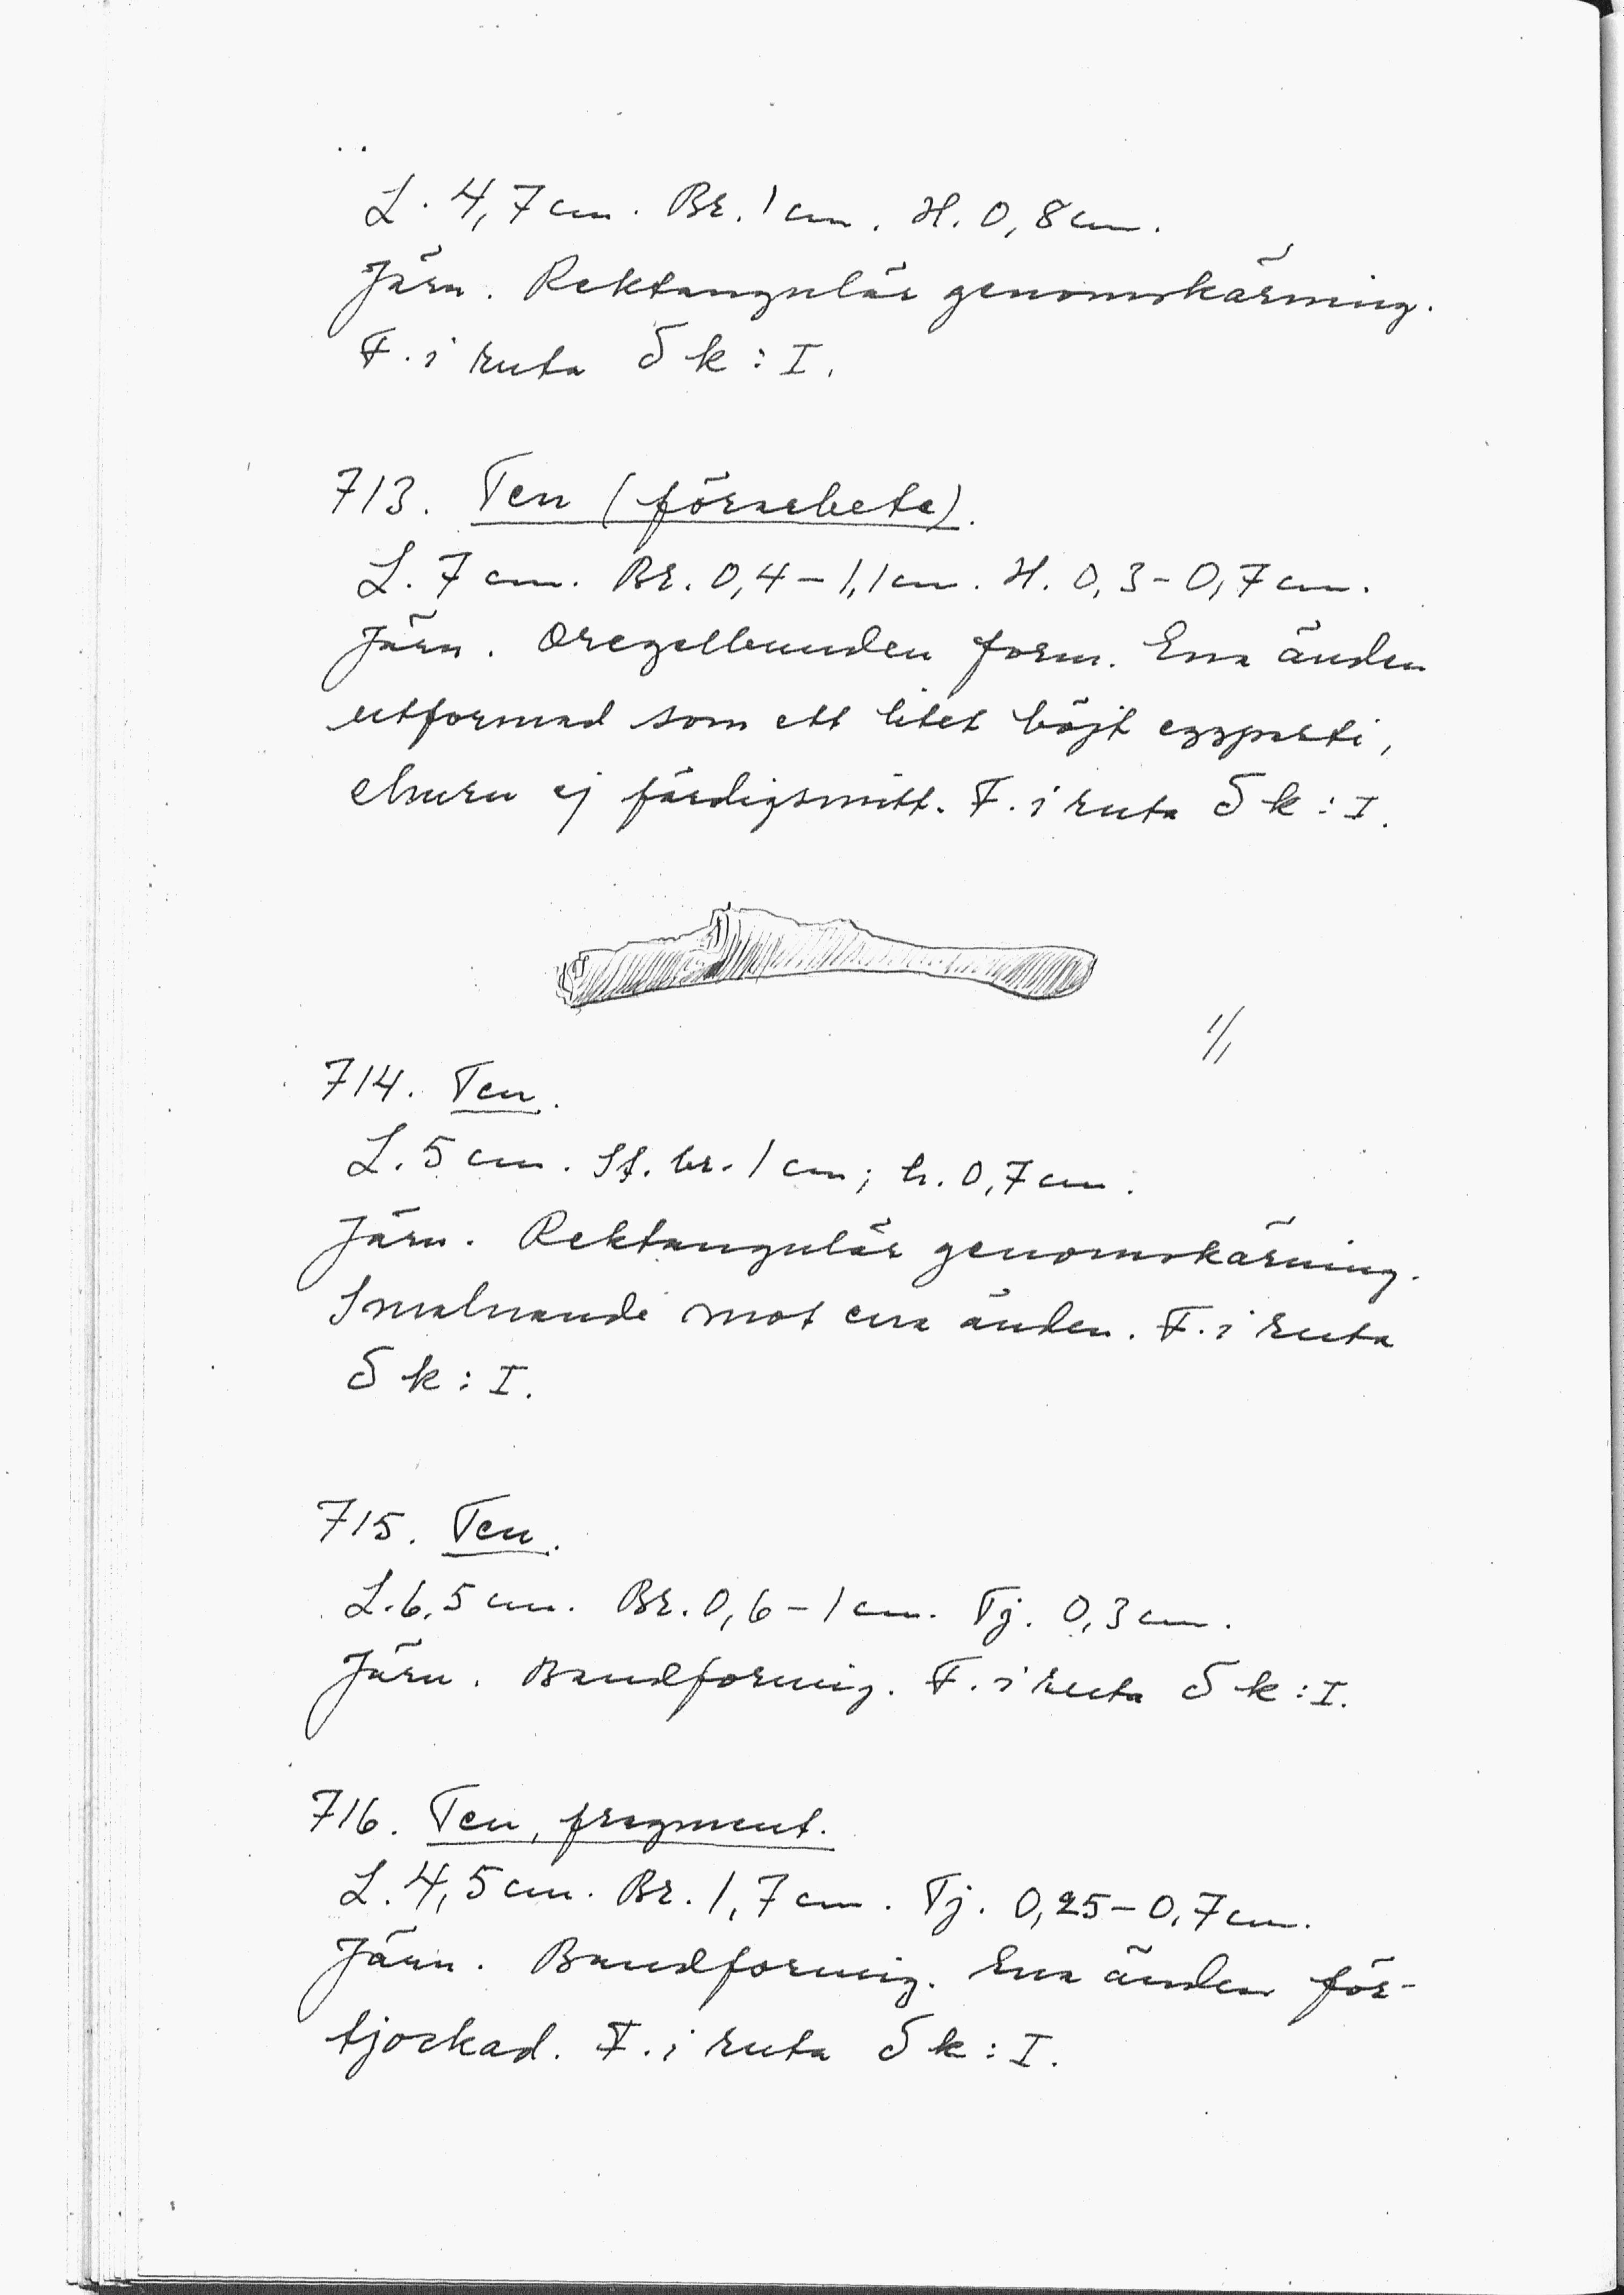 L. 4,7 cm. Br. 1 cm. H. 0,8 cm.
Järn. Rektangulär genomskärning.
F. i ruta δ k : I.
713. Ten (förarbete).
L. 7 cm. Br. 0,4–1,1 cm. H. 0,3–0,7 cm.
Järn. Oregelbunden form. Ena änden
utformad som ett litet böjt eggparti,
ehuru ej färdigsmitt. F. i ruta δ k : I.
1/1
714. Ten.
L. 5 cm. St. br. 1 cm; h. 0,7 cm.
Järn. Rektangulär genomskärning.
Smalnande mot ena änden. F. i ruta
δ k : I.
715. Ten.
L. 6,5 cm. Br. 0,6–1 cm. Tj. 0,3 cm.
Järn. Bandformig. F. i ruta δ k : I.
716. Ten, fragment.
L. 4,5 cm. Br. 1,7 cm. Tj. 0,25–0,7 cm.
Järn. Bandformig. Ena änden för-
tjockad. F. i ruta δ k : I.